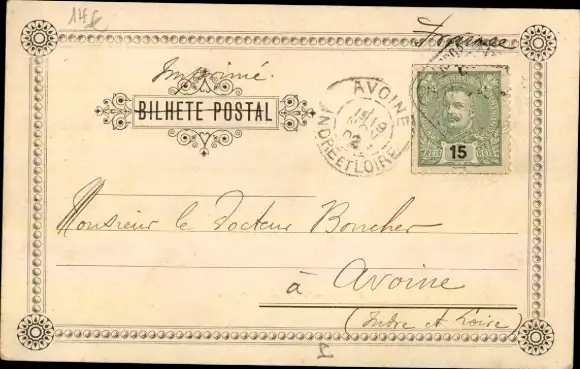 France
Imprimé
BILHETE POSTAL
AVOINE
INDRE ET LOIRE
15
Monsieur le Docteur Boucher
à Avoine
(Indre et Loire)